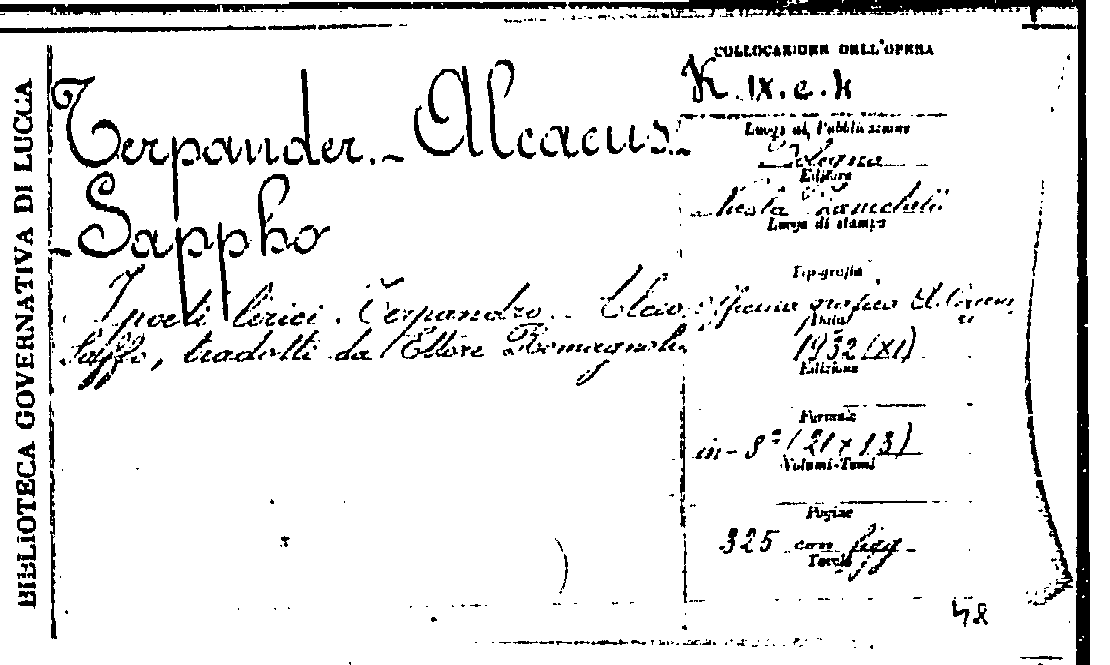 BIBLIOTECA GOVERNATIVA DI LUCCA
Terpander.- Alcaeus.-
- Sappho
I poeti lirici. Terpandro. Alceo
Saffo, tradotti da Ettore Romagnoli
COLLOCAZIONE DELL'OPERA
K. IX. e. 4
Luogo di Pubblicazione
Bologna
Editore
Nicola Zanichelli
Luogo di stampa
Tipografia
Officina grafica
Data
1932 (XI)
Edizione
Formato
in-8° (21x13)
Volumi-Tomi
Pagine
325 con figg.
Tavole
48